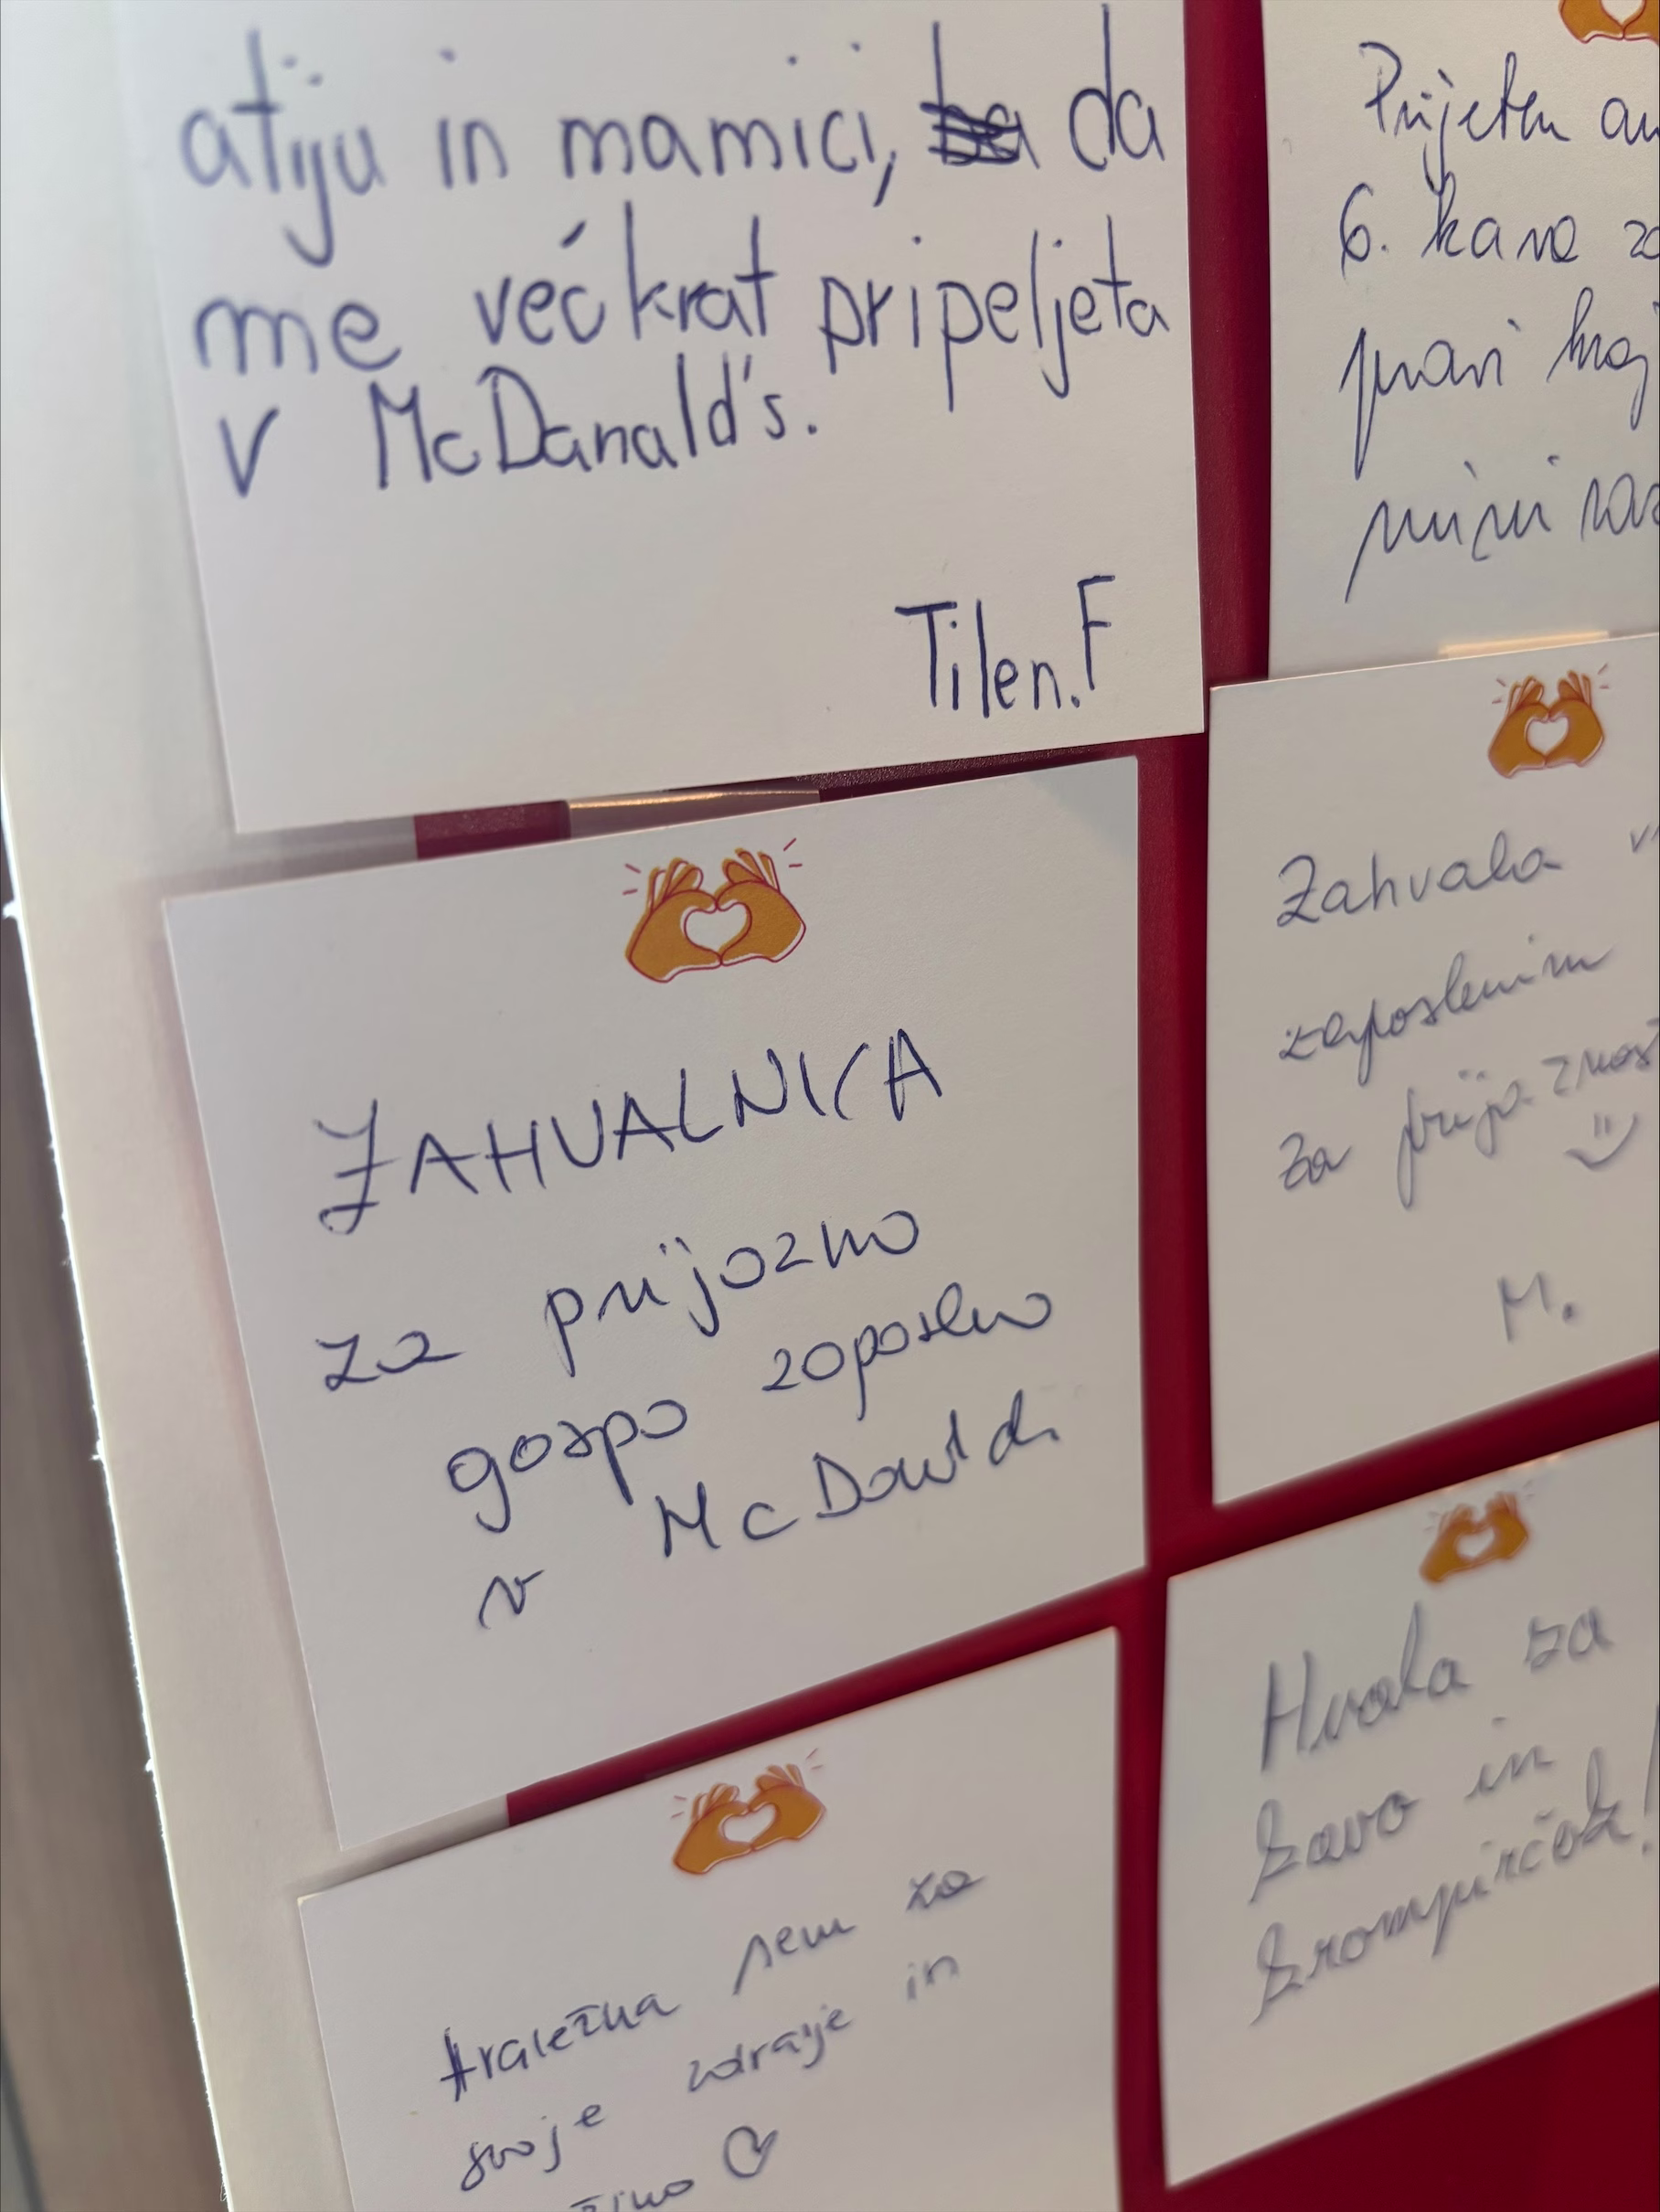 atiju in mamici, da
me večkrat pripeljeta
v McDanald's.
Tilen.F
Prijeten
6. kava
pravi
mini
ZAHVALNICA
za prijazno
gospo zaposleno
v McDonald's
Zahvala
zaposlenim
za prijaznost
M.
Hvala za
kavo in
krompirček!
Hvaležna sem za
svoje zdravje in